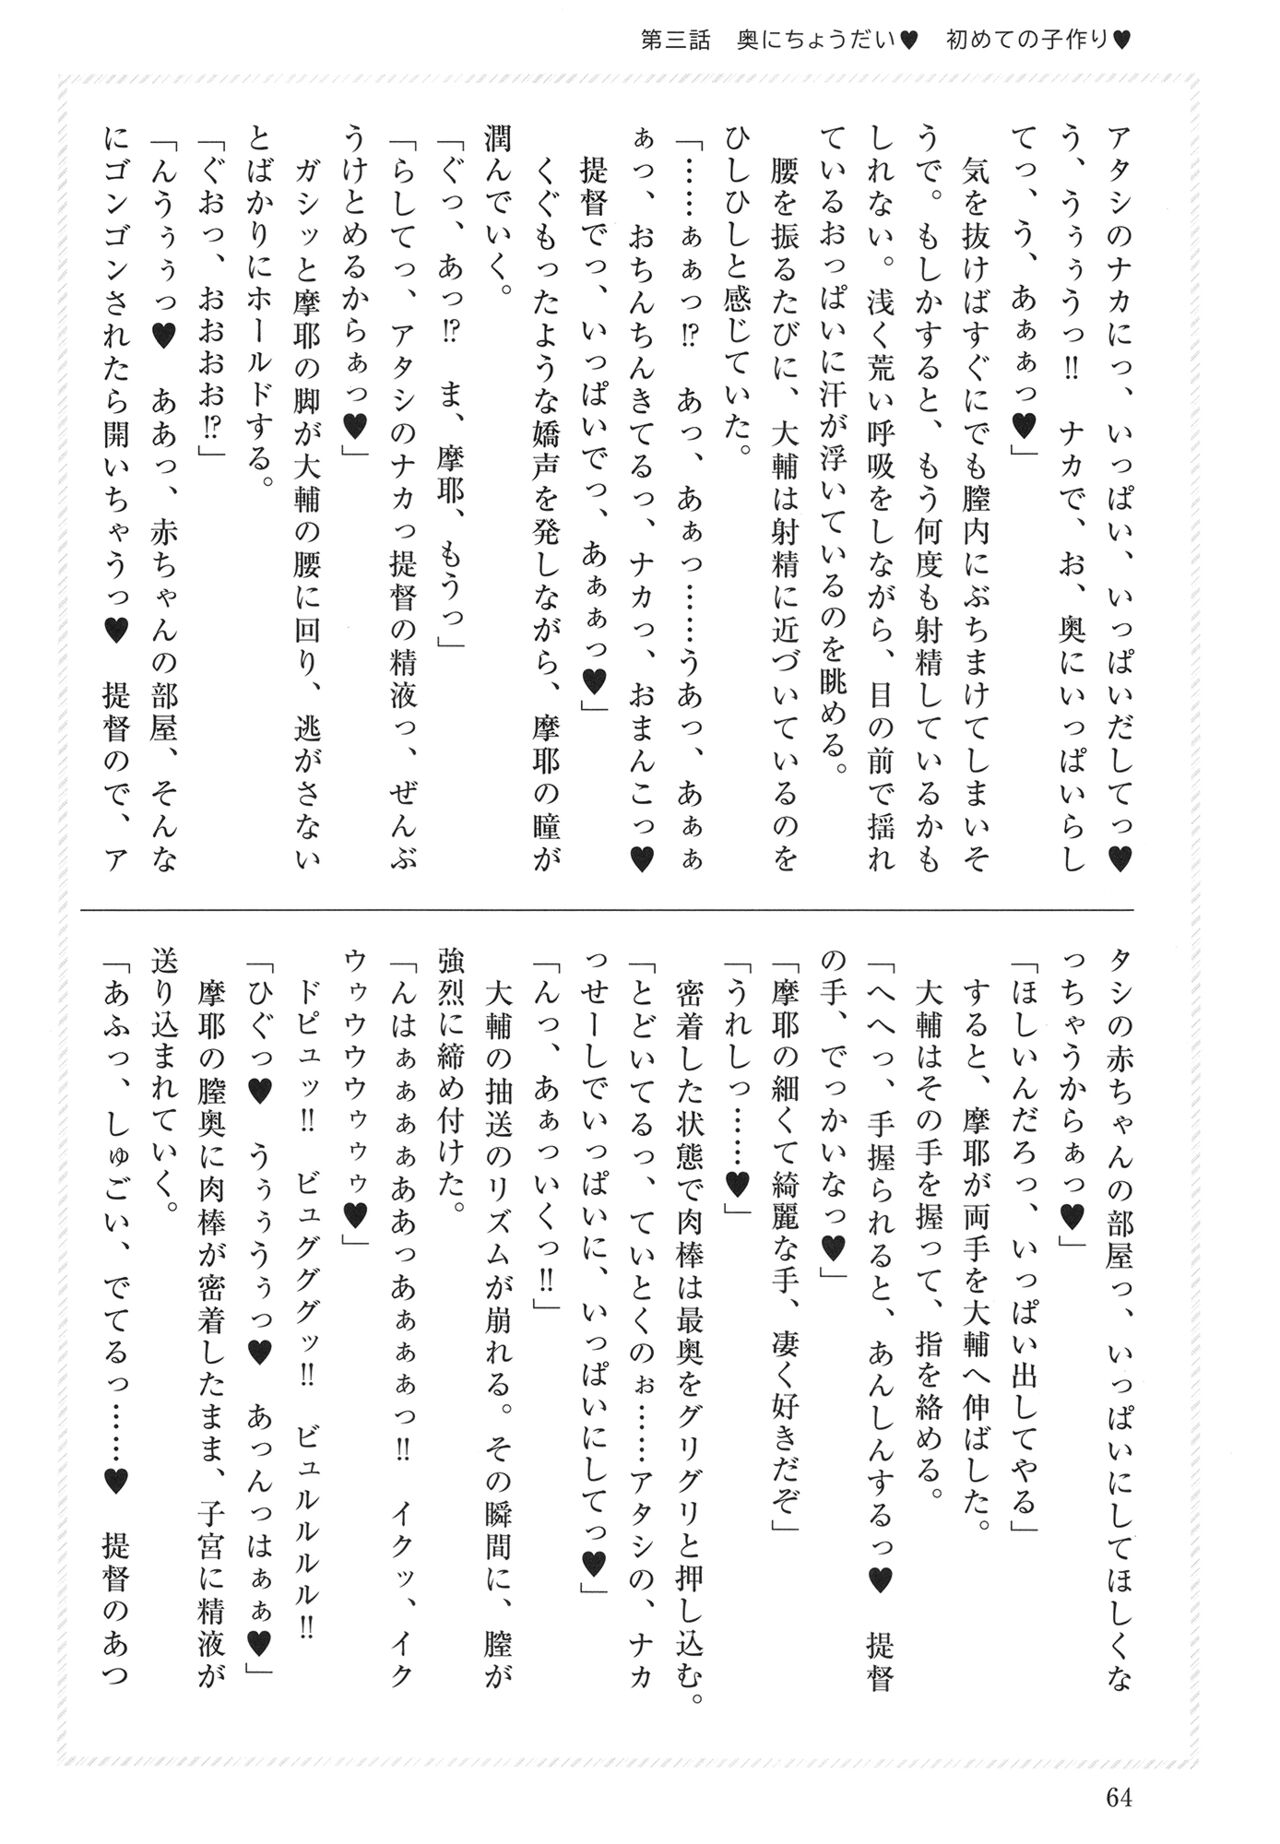 第三話　奥にちょうだい♥　初めての子作り♥
アタシのナカにっ、いっぱい、いっぱいだしてっ♥
う、うぅぅうっ!!　ナカで、お、奥にいっぱいらし
てっ、う、あぁぁっ♥」
　気を抜けばすぐにでも膣内にぶちまけてしまいそ
うで。もしかすると、もう何度も射精しているかも
しれない。浅く荒い呼吸をしながら、目の前で揺れ
ているおっぱいに汗が浮いているのを眺める。
　腰を振るたびに、大輔は射精に近づいているのを
ひしひしと感じていた。
「……ぁぁっ!?　あっ、あぁっ……うあっ、あぁぁ
ぁっ、おちんちんきてるっ、ナカっ、おまんこっ♥
　提督でっ、いっぱいでっ、あぁぁっ♥」
　くぐもったような嬌声を発しながら、摩耶の瞳が
潤んでいく。
「ぐっ、あっ!?　ま、摩耶、もうっ」
「らしてっ、アタシのナカっ提督の精液っ、ぜんぶ
うけとめるからぁっ♥」
　ガシッと摩耶の脚が大輔の腰に回り、逃がさない
とばかりにホールドする。
「ぐおっ、おおおお!?」
「んうぅぅっ♥　ああっ、赤ちゃんの部屋、そんな
にゴンゴンされたら開いちゃうっ♥　提督ので、ア
タシの赤ちゃんの部屋っ、いっぱいにしてほしくな
っちゃうからぁっ♥」
「ほしいんだろっ、いっぱい出してやる」
　すると、摩耶が両手を大輔へ伸ばした。
　大輔はその手を握って、指を絡める。
「へへっ、手握られると、あんしんするっ♥　提督
の手、でっかいなっ♥」
「摩耶の細くて綺麗な手、凄く好きだぞ」
「うれしっ……♥」
　密着した状態で肉棒は最奥をグリグリと押し込む。
「とどいてるっ、ていとくのぉ……アタシの、ナカ
っせーしでいっぱいに、いっぱいにしてっ♥」
「んっ、あぁっいくっ!!」
　大輔の抽送のリズムが崩れる。その瞬間に、膣が
強烈に締め付けた。
「んはぁぁぁぁああっあぁぁぁっ!!　イクッ、イク
ウゥウウウゥゥゥ♥」
　ドピュッ!!　ビュグググッ!!　ビュルルルル!!
「ひぐっ♥　うぅぅうぅっ♥　あっんっはぁぁ♥」
　摩耶の膣奥に肉棒が密着したまま、子宮に精液が
送り込まれていく。
「あふっ、しゅごい、でてるっ……♥　提督のあつ
64